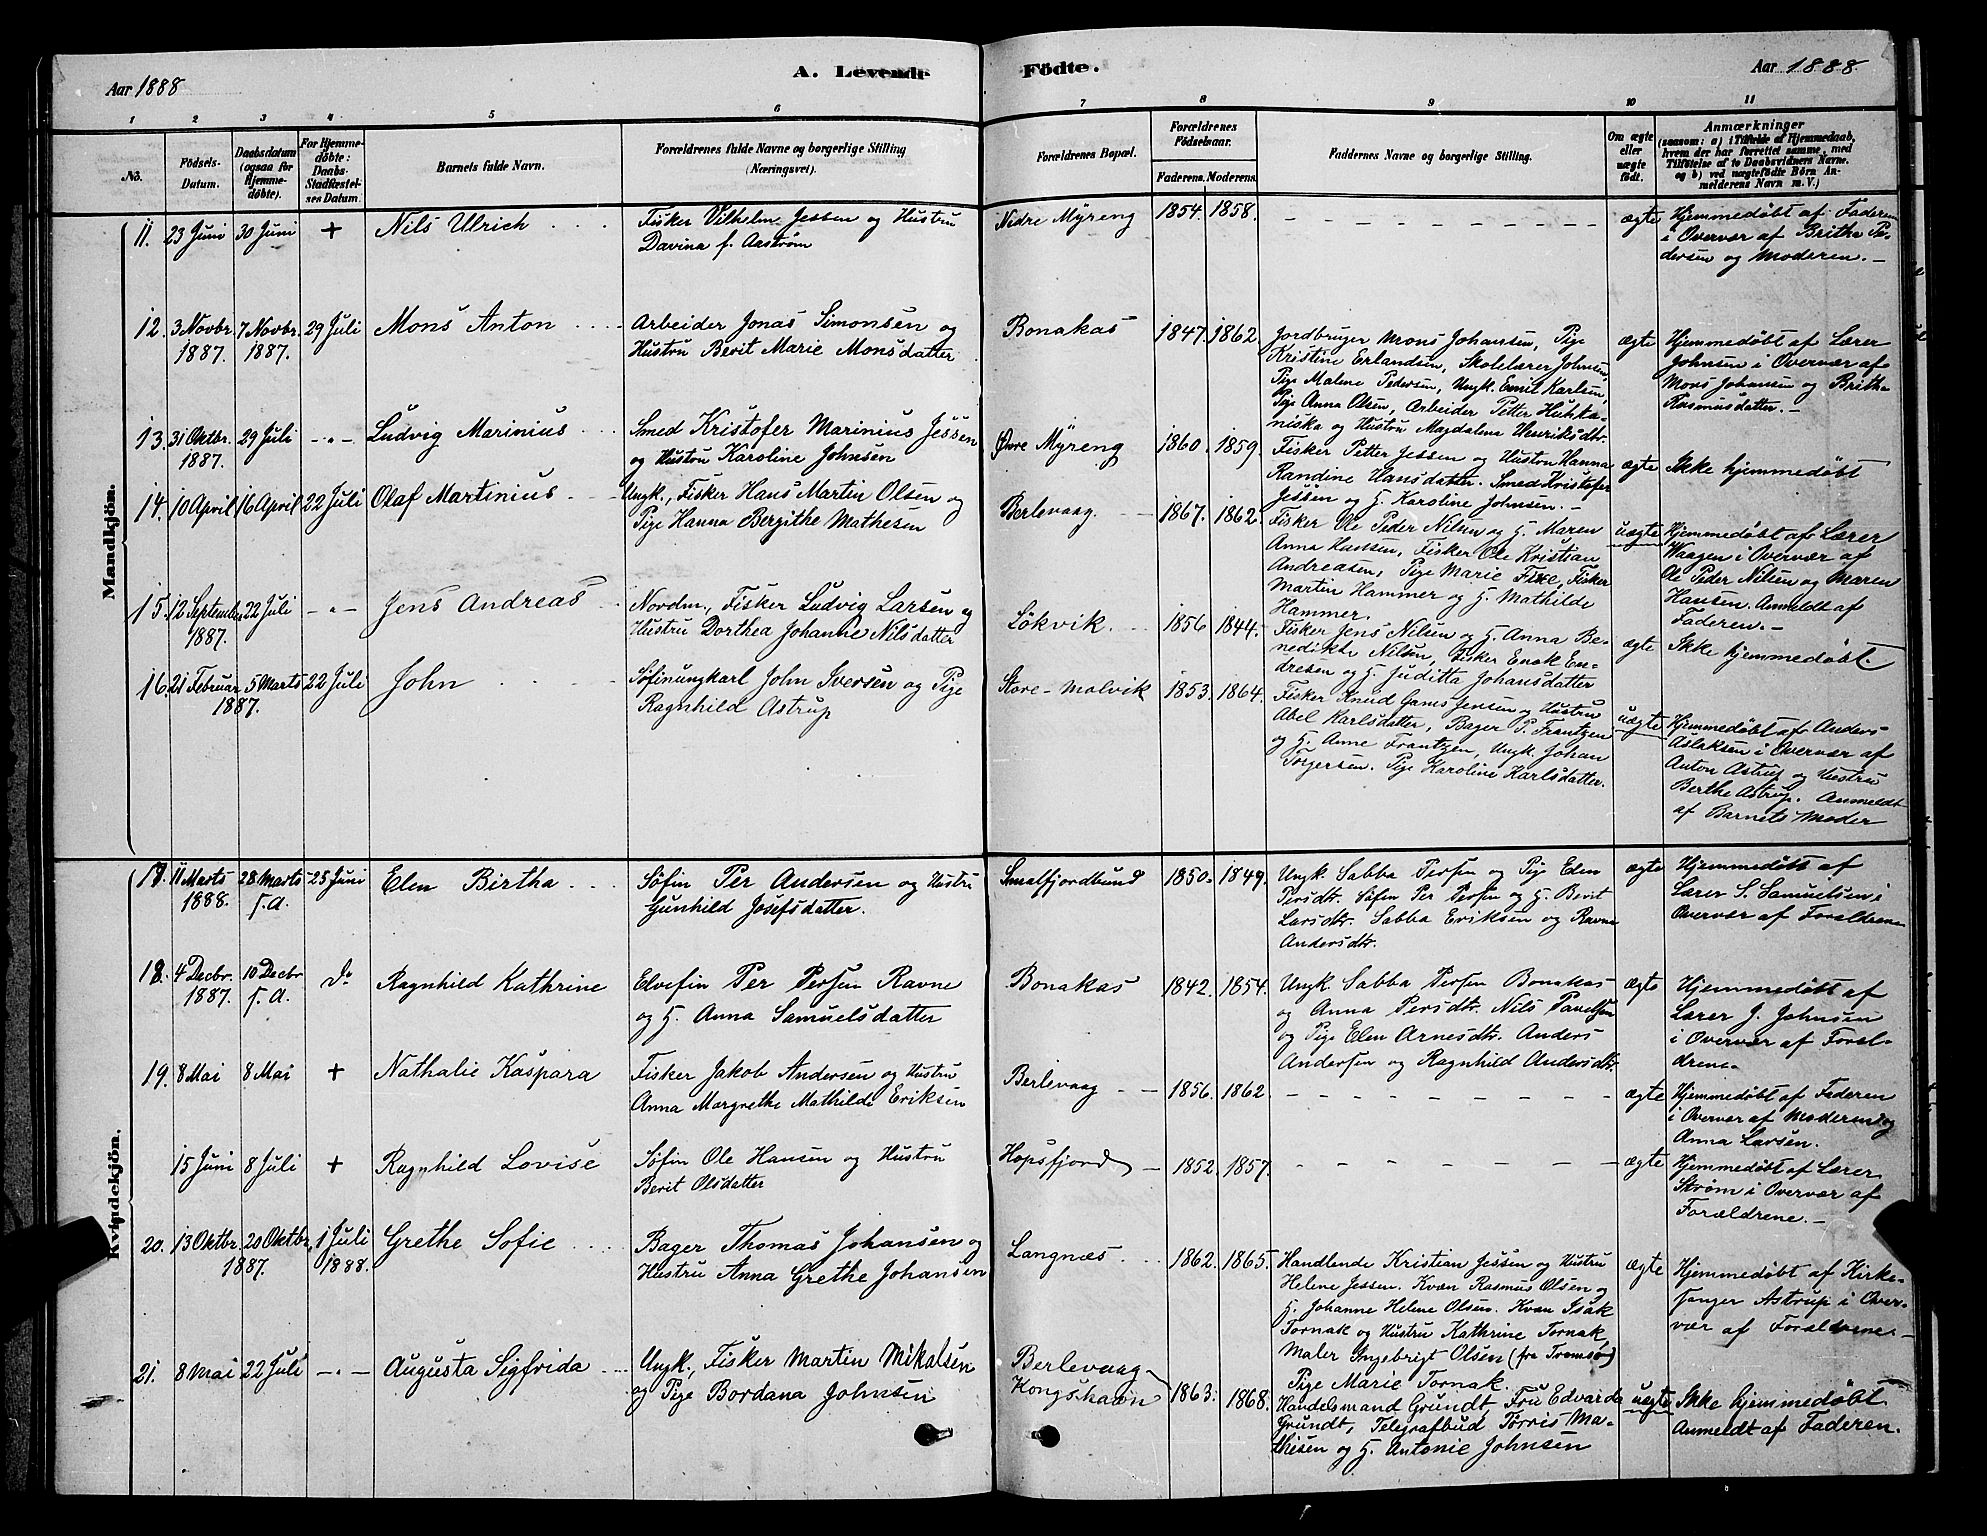 Aar 1888
A. Levende
Födte.
Aar 1888
1 2 3 4 5 6 7 8 9 10 11
No.
Födsels-
Datum.
Daabsdatum
(ogsaa for
Hjemme-
döbte).
For Hjemme-
döbte:
Daabs-
Stadfæstel-
ses Datum.
Barnets fulde Navn.
Forældrenes fulde Navne og borgerlige Stilling
(Næringsvei).
Forældrenes Bopæl.
Forældrenes
Födselsaar.
Faderens. Moderens.
Faddernes Navne og borgerlige Stilling.
Om ægte
eller
uægte
födt.
Anmærkninger
(saasom: a) i Tilfælde af Hjemmedaab,
hvem der har forrettet samme, med
Tilföielse af to Daabsvidners Navne.
og b) ved uægtefödte Börn An-
melderens Navn m. V.)
Mandkjön.
11. 23 Juni 30 Juni + Nils Ulrich
Fisker Vilhelm Jessen og Hustru
Davina f. Aaström
Nedre Myreng 1854. 1858. ægte
Hjemmedøbt af Faderen
i Overvær af Britha Pe-
dersen og Moderen. –
12. 3 Novbr. 7 Novbr. 29 Juli Mons Anton
1887. 1887.
Arbeider Jonas Simonsen og
Hustru Berit Marie Monsdatter
Bonakas 1847. 1862
Jordbruger Mons Johansen, Pige
Kristine Erlandsen, Skolelærer Johnsen
Pige Malene Pedersen, Ungk. Emil Karlsen,
Pige Anna Olsen, Arbeider Petter Huhta-
niska og Hustru Magdalena Henriksdtr.
ægte
Hjemmedøbt af Lærer
Johnsen i Overvær af
Mons Johansen og Britha
Rasmusdatter. –
13. 31 Oktbr. 29 Juli –"– Ludvig Marinius
1887.
Smed Kristofer Marinius Jessen
og Hustru Karoline Johnsen
Øvre Myreng 1860. 1859.
Fisker Petter Jessen og Hustru Hanna
Randine Hansdatter. Smed Kristofer
Jessen og H. Karoline Johnsen. –
ægte Ikke hjemmedøbt
14. 10 April 16 April 22 Juli Olaf Martinius
Ungk., Fisker Hans Martin Olsen og
Pige Hanna Bergithe Mathesen
Berlevaag. 1867. 1862.
Fisker Ole Peder Nilsen og H. Maren
Anna Hansen, Fisker Ole Kristian
Andreasen, Pige Marie Fixe, Fisker
Martin Hammer og H. Mathilde
Hammer.
uægte
Hjemmedøbt af Lærer
Waagen i Overvær af
Ole Peder Nilsen og Maren
Hansen. Anmeldt af
Faderen. –
15. 12 September 22 Juli –"– Jens Andreas
1887.
Nordm., Fisker Ludvig Larsen og
Hustru Dorthea Johanne Nilsdatter
Lökvik. 1856 1844.
Fisker Jens Nilsen og H. Anna Be-
nedikte Nilsen, Fisker Enok En-
dresen og H. Juditta Johansdatter
ægte Ikke hjemmedøbt.
16. 21 Februar 5 Marts 22 Juli John
1887.
Søfinungkarl John Iversen og Pige
Ragnhild Astrup
Store-Molvik 1853. 1864.
Fisker Knud Gams Jensen og Hustru
Abel Karlsdatter, Bager P. Frantzen
og H. Anne Frantzen, Ungk. Johan
Torgersen. Pige Karoline Karlsdatter.
uægte
Hjemmedøbt af Anders
Aslaksen i Overvær af
Anton Astrup og Hustru
Berthe Astrup. Anmeldt
af Barnets Moder
Kvindekjön.
17. 11 Marts 28 Marts 25 Juni Elen Birtha
1888. s. A.
Søfin Per Andersen og Hustru
Gunhild Josefsdatter.
Smalfjordbund 1850. 1849.
Ungk. Sabba Persen og Pige Elen
Persdtr. Søfin Per Persen og H. Berit
Larsdtr. Sabba Eriksen og Ravna
Andersdtr.
ægte
Hjemmedøbt af
Lærer S. Samuelsen i
Overvær af Forældrene
18. 4 Decbr. 10 Decbr do Ragnhild Kathrine
1887. s. A.
Elvefin Per Persen Ravne
og H. Anna Samuelsdatter
Bonakas 1842. 1854.
Ungk. Sabba Persen Bonakas
og Anna Persdtr. Nils Paulsen
og Pige Elen Arnesdtr. Anders
Andersen og Ragnhild Andersdtr.
ægte
Hjemmedøbt af
Lærer J. Johnsen
i Overvær af Foræl-
drene.
19. 8 Mai 8 Mai + Nathalie Kaspara
Fisker Jakob Andersen og Hustru
Anna Margrethe Mathilde Eriksen
Berlevaag 1856. 1862. ægte
Hjemmedøbt af Faderen
i Overvær af Moderen og
Anna Larsen.
15 Juni 8 Juli + Ragnhild Lovise
Søfin Ole Hansen og Hustru
Berit Olsdatter
Hopsfjord 1852. 1857. ægte
Hjemmedøbt af Lærer
Strøm i Overvær af
Forældrene. –
20. 13 Oktbr. 20 Oktbr. 1 Juli Grethe Sofie
1887. 1888.
Bager Thomas Johansen og
Hustru Anna Grethe Johansen
Langnæs 1862. 1865.
Handlende Kristian Jessen og Hustru
Helene Jessen. Kvæn Rasmus Olsen og
H. Johanne Helene Olsen. Kvæn Isak
Tornak og Hustru Kathrine Tornak,
Maler Ingebrigt Olsen (fra Tromsø)
Pige Marie Tornak.
ægte
Hjemmedøbt af Kirke-
sanger Astrup i Over-
vær af Forældrene –
21. 8 Mai 22 Juli –"– Augusta Sigfrida
Ungk., Fisker Martin Mikalsen
og Pige Bordana Johnsen
Berlevaag
Kongshavn 1863. 1868.
Handelsmand Grundt Fru Edvarda
Grundt, Telegrafbud Tørris Ma-
thisen og H. Antonie Johnsen
uægte
Ikke hjemmedøbt
Anmeldt af Faderen.